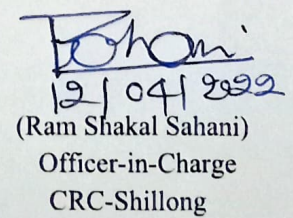 Sahani
12/04/2022
(Ram Shakal Sahani)
Officer-in-Charge
CRC-Shillong